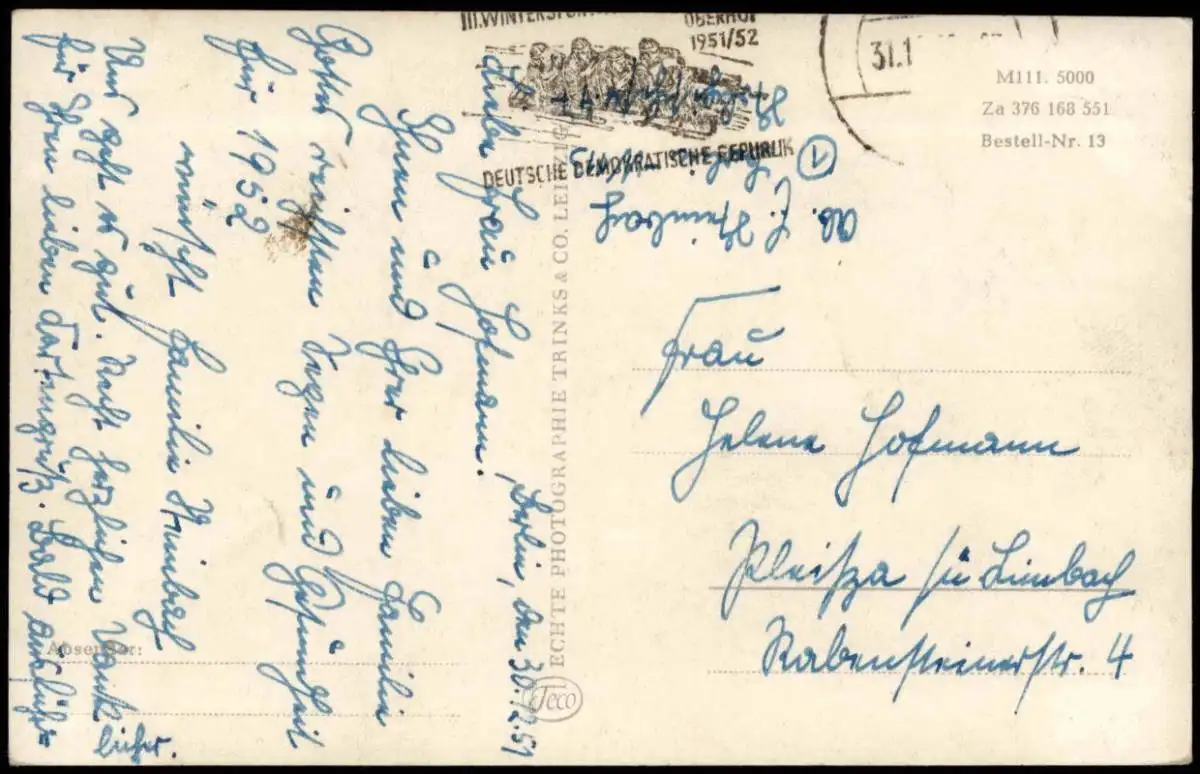 III. WINTERSPORT
OBERHOF
1951/52
DEUTSCHE DEMOKRATISCHE REPUBLIK
31.1
M111. 5000
Za 376 168 551
Bestell-Nr. 13
Ab. E. Steinbach
①
Berlin, den 30.12.51
Liebe Frau Hofmann!
Ihnen und Ihrer lieben Familie
Gottes reichsten Segen und Gesundheit
für 1952
wünscht Familie Steinbach
Uns geht es gut. Recht herzlichen Dank
für Ihren lieben Kartengruß. Bald ausführ-
licher.
Absender:
ECHTE PHOTOGRAPHIE TRINKS & CO. LEIPZIG
Teco
Frau
Helene Hofmann
Pleißa ü/ Limbach
Rabensteinerstr. 4